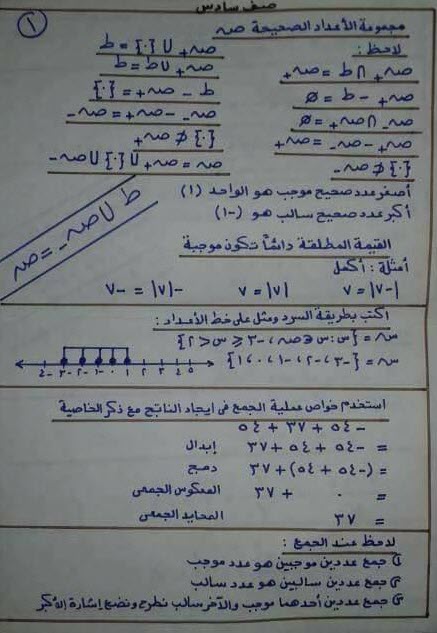 صف سادس
١
مجموعة الأعداد الصحيحة صـ
لاحظ :
صـ+ ∩ ط = صـ+
صـ+ ∪ {٠} = ط
صـ+ ∪ ط = ط
صـ+ - ط = ∅
ط - صـ+ = {٠}
صـ+ ∩ صـ- = ∅
صـ- - صـ+ = صـ-
صـ+ - صـ- = صـ+
{٠} ⊄ صـ+
{٠} ⊄ صـ-
صـ = صـ+ ∪ {٠} ∪ صـ-
أصغر عدد صحيح موجب هو الواحد (١)
أكبر عدد صحيح سالب هو (-١)
ط ∪ صـ- = صـ
القيمة المطلقة دائماً تكون موجبة
أمثلة : أكمل
|-٧| = ٧    |٧| = ٧    -|٧| = -٧
اكتب بطريقة السرد ومثل على خط الأعداد :
سـ = {س : س ∈ صـ ، -٣ ≤ س < ٢}
سـ = {-٣ ، -٢ ، -١ ، ٠ ، ١}
-٤ -٣ -٢ -١ ٠ ١ ٢ ٣ ٤ ٥
استخدم خواص عملية الجمع فى ايجاد الناتج مع ذكر الخاصية
-٥٤ + ٣٧ + ٥٤
= -٥٤ + ٥٤ + ٣٧ إبدال
= (-٥٤ + ٥٤) + ٣٧ دمج
= ٠ + ٣٧ المعكوس الجمعى
= ٣٧ المحايد الجمعى
لاحظ عند الجمع :
١ جمع عددين موجبين هو عدد موجب
٢ جمع عددين سالبين هو عدد سالب
٣ جمع عددين أحدهما موجب والآخر سالب نطرح ونضع إشارة الأكبر